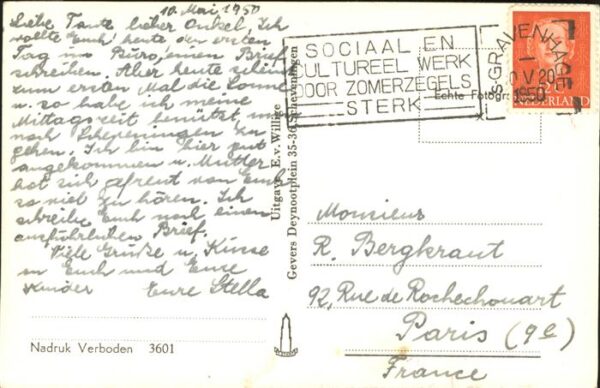 10. Mai 1950
Liebe Tante lieber Onkel. Ich
wollte Euch heute den ersten
Tag im Büro einen Brief
schreiben. Aber heute schien
zum ersten Mal die Sonne
u. so habe ich meine
Mittagszeit benützt um
nach Scheveningen zu
gehen. Ich bin hier gut
angekommen u. Mutter
hat sich gefreut von Euch
so viel zu hören. Ich
schreibe Euch noch einen
ausführlichen Brief.
Viele Grüße u. Küsse
an Euch und Eure
Kinder Eure Stella
Nadruk Verboden 3601
Uitgave E.v. Willige
Gevers Deynootplein 35-36 Scheveningen
SOCIAAL EN
CULTUREEL WERK
DOOR ZOMERZEGELS
STERK
Echte Fotogr
'S GRAVENHAGE
1950
NEDERLAND
Monsieur
R. Bergkraut
92, Rue de Rochechouart
Paris (9e)
France